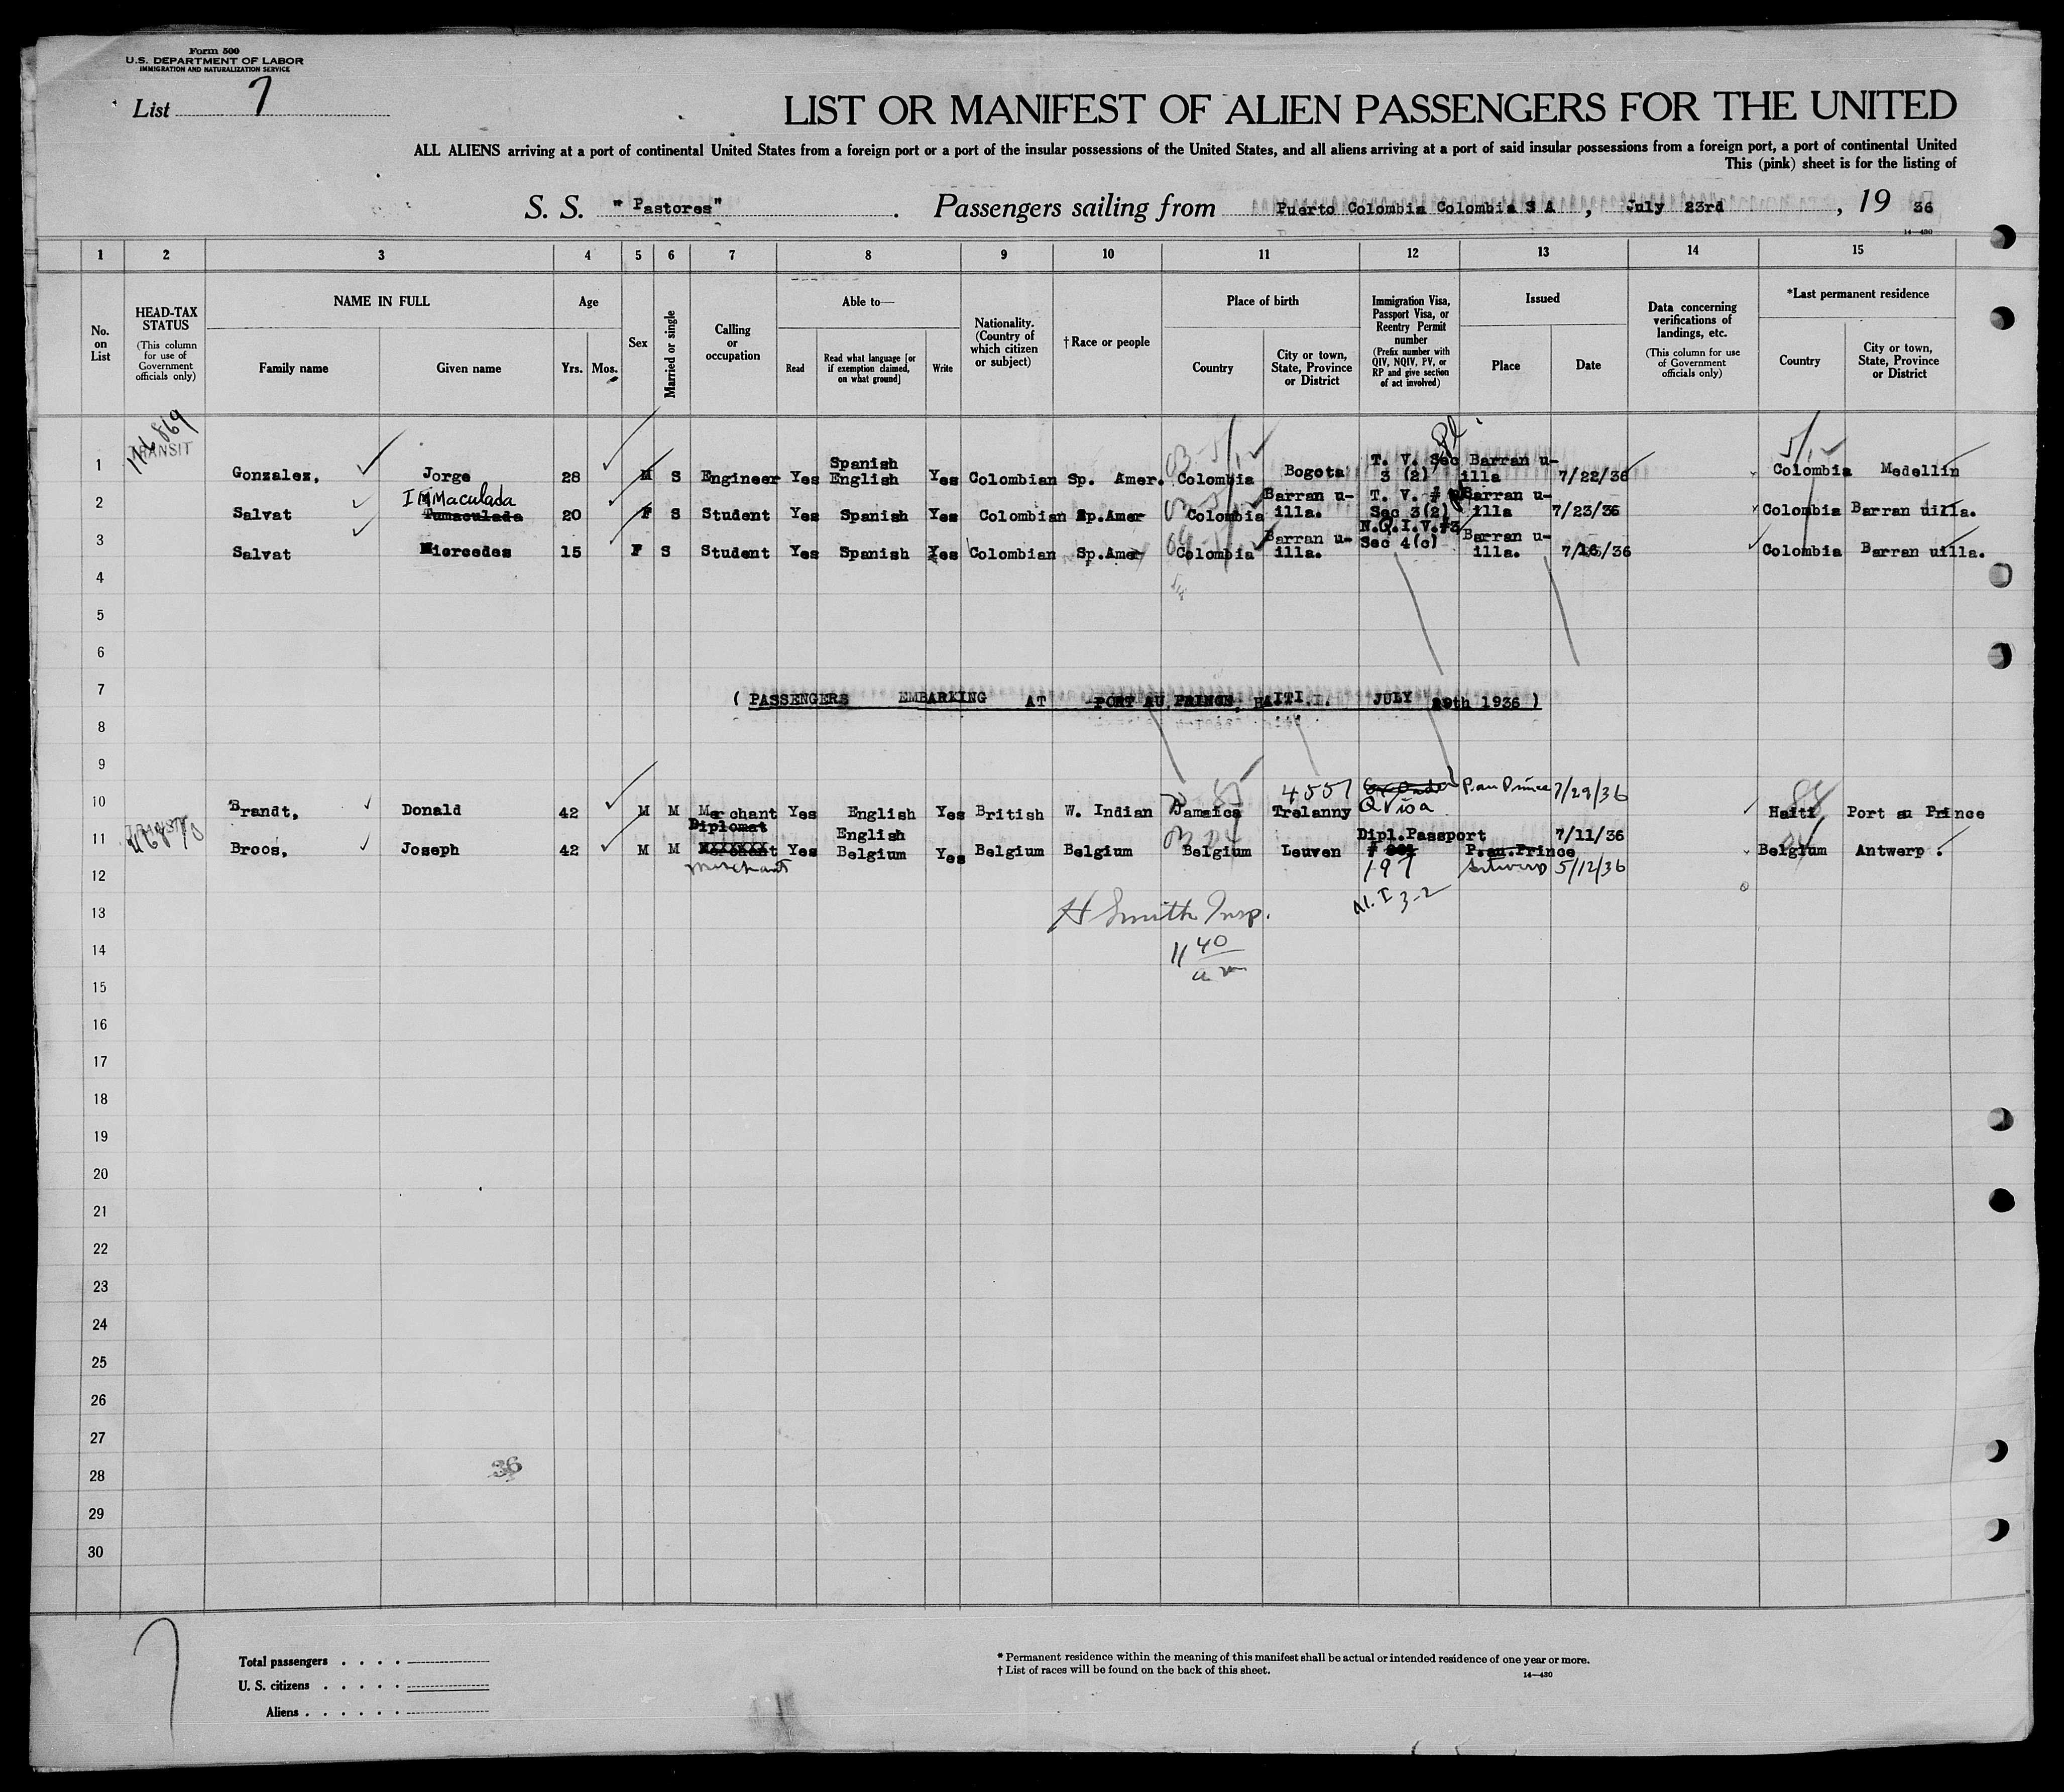 Form 500
U.S. DEPARTMENT OF LABOR
IMMIGRATION AND NATURALIZATION SERVICE
List 7
LIST OR MANIFEST OF ALIEN PASSENGERS FOR THE UNITED
ALL ALIENS arriving at a port of continental United States from a foreign port or a port of the insular possessions of the United States, and all aliens arriving at a port of said insular possessions from a foreign port, a port of continental United
This (pink) sheet is for the listing of
S. S. "Pastores". Passengers sailing from Puerto Colombia Colombia S A, July 23rd, 19 36
14—430
1 2 3 4 5 6 7 8 9 10 11 12 13 14 15
No. on List
HEAD-TAX STATUS
(This column for use of Government officials only)
NAME IN FULL
Family name
Given name
Age
Yrs.
Mos.
Sex
Married or single
Calling or occupation
Able to—
Read
Read what language [or if exemption claimed, on what ground]
Write
Nationality. (Country of which citizen or subject)
†Race or people
Place of birth
Country
City or town, State, Province or District
Immigration Visa, Passport Visa, or Reentry Permit number
(Prefix number with QIV, NQIV, PV, or RP and give section of act involved)
Issued
Place
Date
Data concerning verifications of landings, etc.
(This column for use of Government officials only)
*Last permanent residence
Country
City or town, State, Province or District
1 TRANSIT Gonzalez, Jorge 28 M S Engineer Yes Spanish English Yes Colombian Sp. Amer. Colombia Bogota T. V. Sec 3 (2) Barran u-illa 7/22/36 Colombia Medellin
2 Salvat Immaculada 20 F S Student Yes Spanish Yes Colombian Sp.Amer Colombia Barran u-illa. T. V. # Sec 3(2) Barran u-illa 7/23/36 Colombia Barran uilla.
3 Salvat Mercedes 15 F S Student Yes Spanish Yes Colombian Sp.Amer Colombia Barran u-illa. N.Q.I.V.#3 Sec 4(c) Barran u-illa. 7/16/36 Colombia Barran uilla.
4
5
6
7 ( PASSENGERS EMBARKING AT PORT AU PRINCE, HAITI. JULY 29th 1936 )
8
9
10 Brandt, Donald 42 M M Merchant Yes English Yes British W. Indian Jamaica Trelanny 4557 Q Visa P. au Prince 7/29/36 Haiti Port au Prince
11 TRANSIT Broos, Joseph 42 M M Diplomat Merchant Yes English Belgium Yes Belgium Belgium Belgium Leuven Dipl.Passport # P.au.Prince 7/11/36 Belgium Antwerp.
12 merchant 197 Antwerp 5/12/36
N. I 3-2
13 H Smith Insp.
14 11 40 am
15
16
17
18
19
20
21
22
23
24
25
26
27
28 36
29
30
7
Total passengers
U. S. citizens
Aliens
* Permanent residence within the meaning of this manifest shall be actual or intended residence of one year or more.
† List of races will be found on the back of this sheet.
14—430